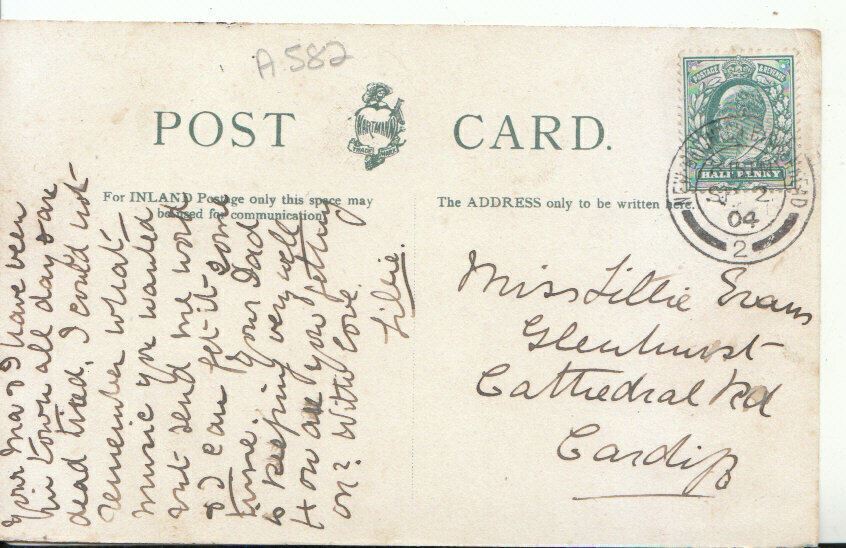 A.582
POST CARD.
HARTMANN
TRADE MARK
For INLAND Postage only this space may
be used for communication.
The ADDRESS only to be written here.
POSTAGE & REVENUE
HALFPENNY
04
2
Your Ma & I have been
in town all day & are
dead tired. I could not
remember what
music you wanted
but send me word
& I can get it some
time. Your Dad
is keeping very well
How are you getting
on? With love.
Lillie.
Miss Lillie Evans
Glenhurst
Cathedral Rd
Cardiff